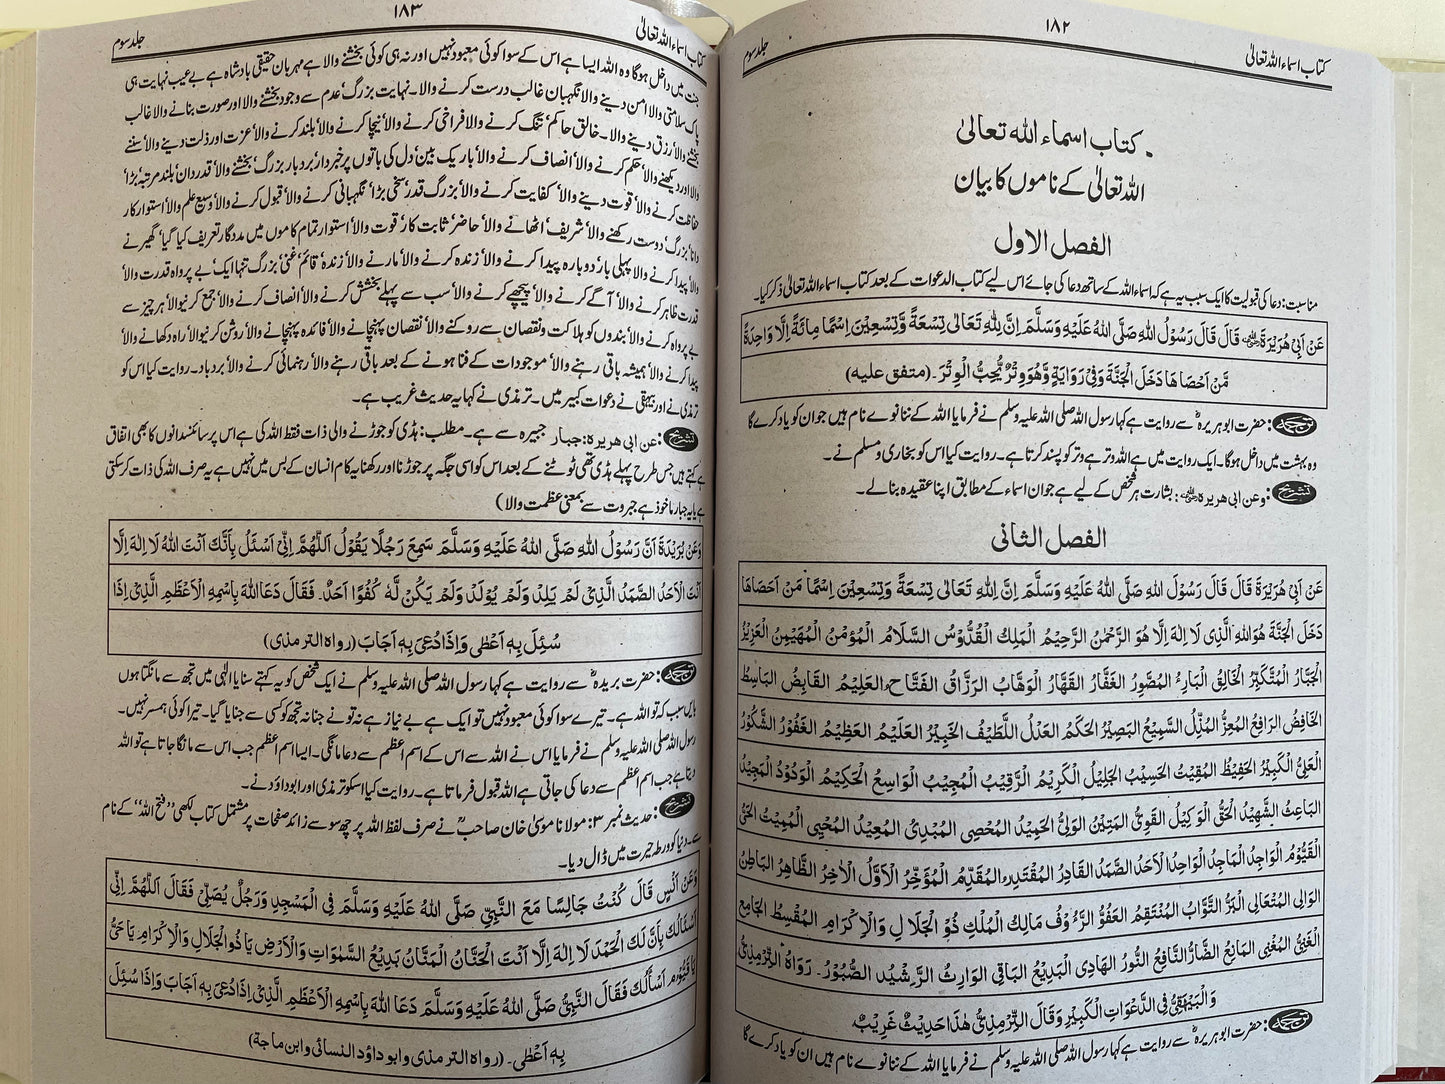 ۱۸۲
کتاب اسماء اللہ تعالیٰ
جلد سوم
کتاب اسماء اللہ تعالیٰ
اللہ تعالیٰ کے ناموں کا بیان
الفصل الاول
مناسبت: دعا کی قبولیت کا ایک سبب یہ ہے کہ اسماء اللہ کے ساتھ دعا کی جائے اس لیے کتاب الدعوات کے بعد کتاب اسماء اللہ تعالیٰ ذکر کیا۔
عَنْ اَبِیْ هُرَیْرَةَ ؓ قَالَ قَالَ رَسُوْلُ اللهِ صَلَّی اللهُ عَلَیْهِ وَسَلَّمَ اِنَّ لِلّٰهِ تَعَالٰی تِسْعَةً وَّتِسْعِیْنَ اِسْمًا مِائَةً اِلَّا وَاحِدَةً
مَّنْ اَحْصَاهَا دَخَلَ الْجَنَّةَ وَفِیْ رِوَایَةٍ وَّهُوَ وِتْرٌ یُّحِبُّ الْوِتْرَ۔ (متفق علیه)
ترجمہ: حضرت ابوہریرہؓ سے روایت ہے کہا رسول اللہ صلی اللہ علیہ وسلم نے فرمایا اللہ کے ننانوے نام ہیں جو ان کو یاد کرے گا
وہ بہشت میں داخل ہوگا۔ ایک روایت میں ہے اللہ وتر ہے وتر کو پسند کرتا ہے۔ روایت کیا اس کو بخاری و مسلم نے۔
تشریح: وعن ابی هریرة ؓ: بشارت ہر شخص کے لیے ہے جو ان اسماء کے مطابق اپنا عقیدہ بنا لے۔
الفصل الثانی
عَنْ اَبِیْ هُرَیْرَةَ قَالَ قَالَ رَسُوْلُ اللهِ صَلَّی اللهُ عَلَیْهِ وَسَلَّمَ اِنَّ لِلّٰهِ تَعَالٰی تِسْعَةً وَتِسْعِیْنَ اِسْمًا مَنْ اَحْصَاهَا
دَخَلَ الْجَنَّةَ هُوَ اللهِ الَّذِی لَا اِلٰهَ اِلَّا هُوَ الرَّحْمٰنُ الرَّحِیْمُ الْمَلِكُ الْقُدُّوْسُ السَّلَامُ الْمُؤْمِنُ الْمُهَیْمِنُ الْعَزِیْزُ
الْجَبَّارُ الْمُتَكَبِّرُ الْخَالِقُ الْبَارِءُ الْمُصَوِّرُ الْغَفَّارُ الْقَهَّارُ الْوَهَّابُ الرَّزَّاقُ الْفَتَّاحُ الْعَلِیْمُ الْقَابِضُ الْبَاسِطُ
الْخَافِضُ الرَّافِعُ الْمُعِزُّ الْمُذِلُّ السَّمِیْعُ الْبَصِیْرُ الْحَكَمُ الْعَدْلُ اللَّطِیْفُ الْخَبِیْرُ الْعَلِیْمُ الْعَظِیْمُ الْغَفُوْرُ الشَّكُوْرُ
الْعَلِیُّ الْكَبِیْرُ الْحَفِیْظُ الْمُقِیْتُ الْحَسِیْبُ الْجَلِیْلُ الْكَرِیْمُ الرَّقِیْبُ الْمُجِیْبُ الْوَاسِعُ الْحَكِیْمُ الْوَدُوْدُ الْمَجِیْدُ
الْبَاعِثُ الشَّهِیْدُ الْحَقُّ الْوَكِیْلُ الْقَوِیُّ الْمَتِیْنُ الْوَلِیُّ الْحَمِیْدُ الْمُحْصِی الْمُبْدِئُ الْمُعِیْدُ الْمُحْیِی الْمُمِیْتُ الْحَیُّ
الْقَیُّوْمُ الْوَاجِدُ الْمَاجِدُ الْوَاحِدُ الْاَحَدُ الصَّمَدُ الْقَادِرُ الْمُقْتَدِرُ الْمُقَدِّمُ الْمُؤَخِّرُ الْاَوَّلُ الْاٰخِرُ الظَّاهِرُ الْبَاطِنُ
الْوَالِی الْمُتَعَالِی الْبَرُّ التَّوَّابُ الْمُنْتَقِمُ الْعَفُوُّ الرَّءُوْفُ مَالِكُ الْمُلْكِ ذُو الْجَلَالِ وَالْاِكْرَامِ الْمُقْسِطُ الْجَامِعُ
الْغَنِیُّ الْمُغْنِی الْمَانِعُ الضَّارُّ النَّافِعُ النُّوْرُ الْهَادِی الْبَدِیْعُ الْبَاقِی الْوَارِثُ الرَّشِیْدُ الصَّبُوْرُ۔ رَوَاهُ التِّرْمِذِیُّ
وَالْبَیْهَقِیُّ فِی الدَّعْوَاتِ الْكَبِیْرِ وَقَالَ التِّرْمِذِیُّ هٰذَا حَدِیْثٌ غَرِیْبٌ
ترجمہ: حضرت ابوہریرہؓ سے روایت ہے کہا رسول اللہ صلی اللہ علیہ وسلم نے فرمایا اللہ کے ننانوے نام ہیں ان کو یاد کرے گا
۱۸۳
کتاب اسماء اللہ تعالیٰ
جلد سوم
جنت میں داخل ہوگا وہ اللہ ایسا ہے اس کے سوا کوئی معبود نہیں اور نہ ہی کوئی بخشنے والا ہے مہربان حقیقی بادشاہ ہے بے عیب نہایت ہی
پاک سلامتی والا امن دینے والا نگہبان غالب درست کرنے والا۔ نہایت بزرگ، عدم سے وجود بخشنے والا اور صورت بنانے والا غالب
بخشنے والا، رزق دینے والا۔ خالق حاکم، تنگ کرنے والا فراخی کرنے والا، نیچا کرنے والا، بلند کرنے والا، عزت اور ذلت دینے والا، سننے
والا اور دیکھنے والا، حکم کرنے والا، انصاف کرنے والا، باریک بین، دل کی باتوں پر خبردار، بردبار بزرگ، بخشنے والا، قدردان، بلند مرتبہ، بڑا،
حفاظت کرنے والا، قوت دینے والا، کفایت کرنے والا، بزرگ قدر، سخی، بڑا، نگہبانی کرنے والا، قبول کرنے والا، وسیع علم والا، استوار کار
دانا، بزرگ، دوست رکھنے والا، شریف، اٹھانے والا، حاضر، ثابت کار، قوت والا، استوار تمام کاموں میں مددگار تعریف کیا گیا، گھیرنے
والا، پیدا کرنے والا پہلی بار، دوبارہ پیدا کرنے والا، زندہ کرنے والا، مارنے والا، زندہ، قائم، غنی، بزرگ تنہا ایک، بے پرواہ قدرت والا،
قدرت ظاہر کرنے والا، آگے کرنے والا، پیچھے کرنے والا، سب سے پہلے بخشش کرنے والا، انصاف کرنے والا، جمع کرنیوالا، ہر چیز سے
بے پرواہ کرنے والا، بندوں کو ہلاکت و نقصان سے روکنے والا، نقصان پہنچانے والا، فائدہ پہنچانے والا، روشن کرنیوالا، راہ دکھانے والا،
پیدا کرنے والا، ہمیشہ باقی رہنے والا، موجودات کے فنا ہونے کے بعد باقی رہنے والا، رہنمائی کرنے والا، بردباد۔ روایت کیا اس کو
ترمذی نے اور بیہقی نے دعوات کبیر میں۔ ترمذی نے کہا یہ حدیث غریب ہے۔
تشریح: عن ابی هریرة: جبار جبیرہ سے ہے۔ مطلب: ہڈی کو جوڑنے والی ذات فقط اللہ کی ہے اس پر سائنسدانوں کا بھی اتفاق
ہے کہتے ہیں جس طرح پہلے ہڈی تھی ٹوٹنے کے بعد اس کو اسی جگہ پر جوڑنا اور رکھنا یہ کام انسان کے بس میں نہیں ہے یہ صرف اللہ کی ذات کر سکتی
ہے یا یہ جبار ماخوذ ہے جبروت سے بمعنی عظمت والا)
وَعَنْ بُرَیْدَةَ اَنَّ رَسُوْلُ اللهِ صَلَّی اللهُ عَلَیْهِ وَسَلَّمَ سَمِعَ رَجُلًا یَقُوْلُ اَللّٰهُمَّ اِنِّیْ اَسْئَلُ بِاَنَّكَ اَنْتَ اللهُ لَا اِلٰهَ اِلَّا
اَنْتَ الْاَحَدُ الصَّمَدُ الَّذِیْ لَمْ یَلِدْ وَلَمْ یُوْلَدْ وَلَمْ یَكُنْ لَّهٗ كُفُوًا اَحَدٌ۔ فَقَالَ دَعَا اللهَ بِاسْمِهِ الْاَعْظَمِ الَّذِیْ اِذَا
سُئِلَ بِهٖ اَعْطٰی وَاِذَا دُعِیَ بِهٖ اَجَابَ (رواه الترمذی)
ترجمہ: حضرت بریدہؓ سے روایت ہے کہا رسول اللہ صلی اللہ علیہ وسلم نے ایک شخص کو یہ کہتے سنا یا الٰہی میں تجھ سے مانگتا ہوں
بایں سبب کہ تو اللہ ہے۔ تیرے سوا کوئی معبود نہیں تو ایک ہے بے نیاز ہے نہ تو نے جنا نہ تجھ کو کسی سے جنایا گیا۔ تیرا کوئی ہمسر نہیں۔
رسول اللہ صلی اللہ علیہ وسلم نے فرمایا اس نے اللہ سے اس کے اسم اعظم سے دعا مانگی۔ ایسا اسم اعظم جب اس سے مانگا جاتا ہے تو اللہ
دیتا ہے جب اسم اعظم سے دعا کی جاتی ہے اللہ قبول فرماتا ہے۔ روایت کیا اسکو ترمذی اور ابوداؤد نے۔
تشریح: حدیث نمبر ۳: مولانا موسیٰ خان صاحبؒ نے صرف لفظ اللہ پر چھ سو سے زائد صفحات پر مشتمل کتاب لکھی ”فتح اللہ“ کے نام
سے۔ دنیا کو ورطہ حیرت میں ڈال دیا۔
وَعَنْ اَنَسٍ قَالَ كُنْتُ جَالِسًا مَعَ النَّبِیِّ صَلَّی اللهُ عَلَیْهِ وَسَلَّمَ فِی الْمَسْجِدِ وَرَجُلٌ یُصَلِّیْ فَقَالَ اَللّٰهُمَّ اِنِّی
اَسْئَالُكَ بِاَنَّ لَكَ الْحَمْدَ لَا اِلٰهَ اِلَّا اَنْتَ الْحَنَّانُ الْمَنَّانُ بَدِیْعُ السَّمٰوَاتِ وَالْاَرْضِ یَا ذُوالْجَلَالِ وَالْاِكْرَامِ یَا حَیُّ
یَا قَیُّوْمُ اَسْأَلُكَ فَقَالَ النَّبِیُّ صَلَّی اللهُ عَلَیْهِ وَسَلَّمَ دَعَا اللهَ بِاسْمِهِ الْاَعْظَمِ الَّذِیْ اِذَا دُعِیَ بِهٖ اَجَابَ وَاِذَا سُئِلَ
بِهٖ اَعْطٰی۔ (رواه الترمذی وابو داؤد النسائی وابن ماجة)